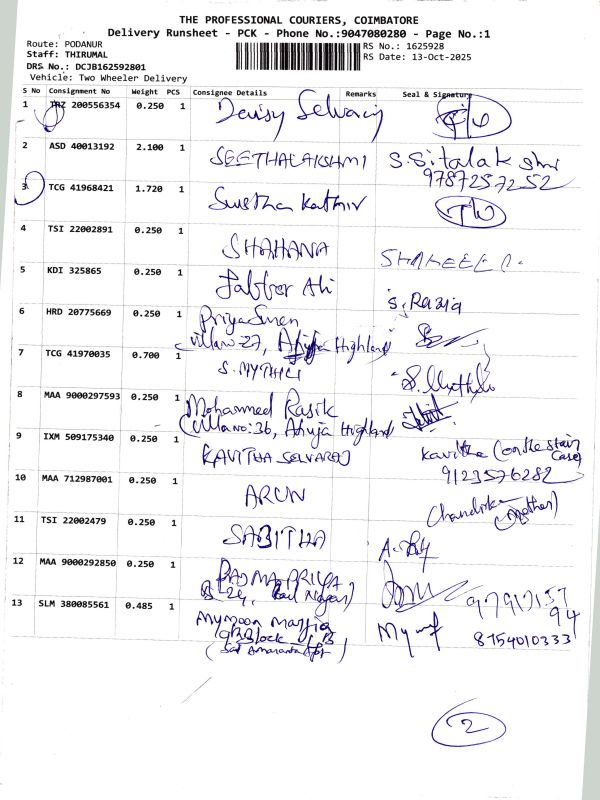 THE PROFESSIONAL COURIERS, COIMBATORE
Delivery Runsheet - PCK - Phone No.:9047080280 - Page No.:1
Route: PODANUR
RS No.: 1625928
Staff: THIRUMAL
RS Date: 13-Oct-2025
DRS No.: DCJB162592801
Vehicle: Two Wheeler Delivery
S No Consignment No Weight PCS Consignee Details Remarks Seal & Signature
1 TRZ 200556354 0.250 1 Daisy Selvaraj
2 ASD 40013192 2.100 1 SEETHALAKSHMI S.Sitalakshmi
9787257252
3 TCG 41968421 1.720 1 Swetha Kathir
4 TSI 22002891 0.250 1 SHAHANA
5 KDI 325865 0.250 1 Jabbor Ali S. Razia
6 HRD 20775669 0.250 1 Priya Suren
Villa no: 27, Ahuja Highland
7 TCG 41970035 0.700 1 S. MYTHILI S. Mythili
8 MAA 9000297593 0.250 1 Mohammed Rasik
(Villa no: 36, Ahuja Highland
9 IXM 509175340 0.250 1 KAVITHA SELVARAJ Kavitha (on the stair case)
9123576282
10 MAA 712987001 0.250 1 ARUN Chandrika (Mother)
11 TSI 22002479 0.250 1 SABITHA
12 MAA 9000292850 0.250 1 PADMA PRIYA
13 SLM 380085561 0.485 1 Mymoon
8754010333
2